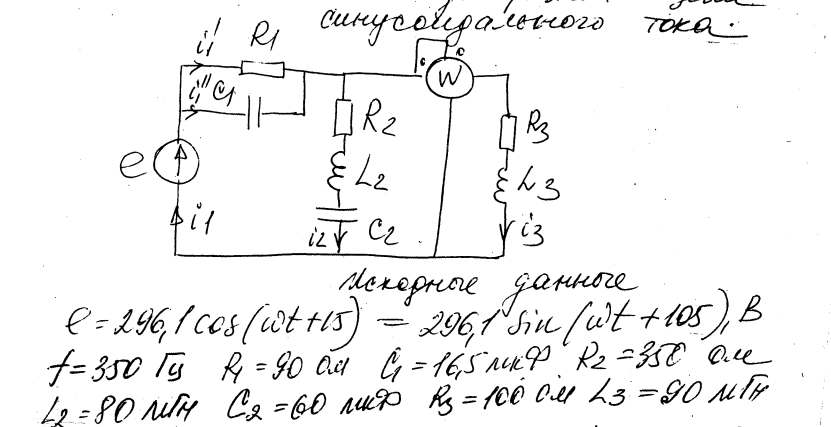 синусоидального тока.
i1' R1
i1'' C1
W
R2
R3
e
L2
L3
i1
i2 C2
i3
Исходные данные
e = 296,1 cos(ωt+15) = 296,1 sin(ωt+105), В
f=350 Гц R1=90 Ом C1=16,5 мкФ R2=350 Ом
L2=80 мГн C2=60 мкФ R3=100 Ом L3=90 мГн